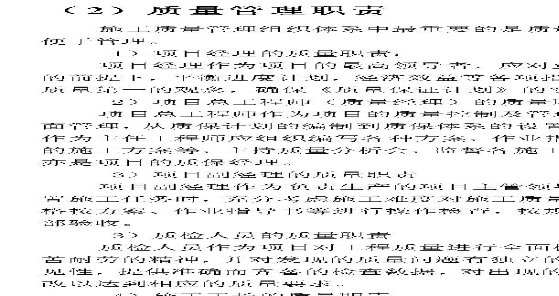 （2）质量管理职责
施工质量管理组织体系中最重要的是质量
便于管理。
1）项目经理的质量职责。
项目经理作为项目的最高领导者，应对
的前提下，平衡进度计划、经济效益等各项指
质量第一的观念，确保《质量保证计划》的
2）项目总工程师（质量经理）的质量
项目总工程师作为项目的质量控制及管
面管理，从质保计划的编制到质保体系的设置
作为工程师应组织编写各种方案、作业
的施工方案等，主持质量分析会，监督各施工
亦是项目的质保经理。
3）项目副经理的质量职责
项目副经理作为负责生产的项目主管领
管施工任务时，充分考虑施工难度对施工质量
格按方案、作业指导书等进行操作检查，按
部验收。
3）质检人员的质量职责
质检人员作为项目对工程质量进行全面
苦耐劳的精神，并对发现的质量问题有独立的
见性，提供准确而齐备的检查数据，对出现的
改以达到相应的质量要求。
4）施工工长的质量职责